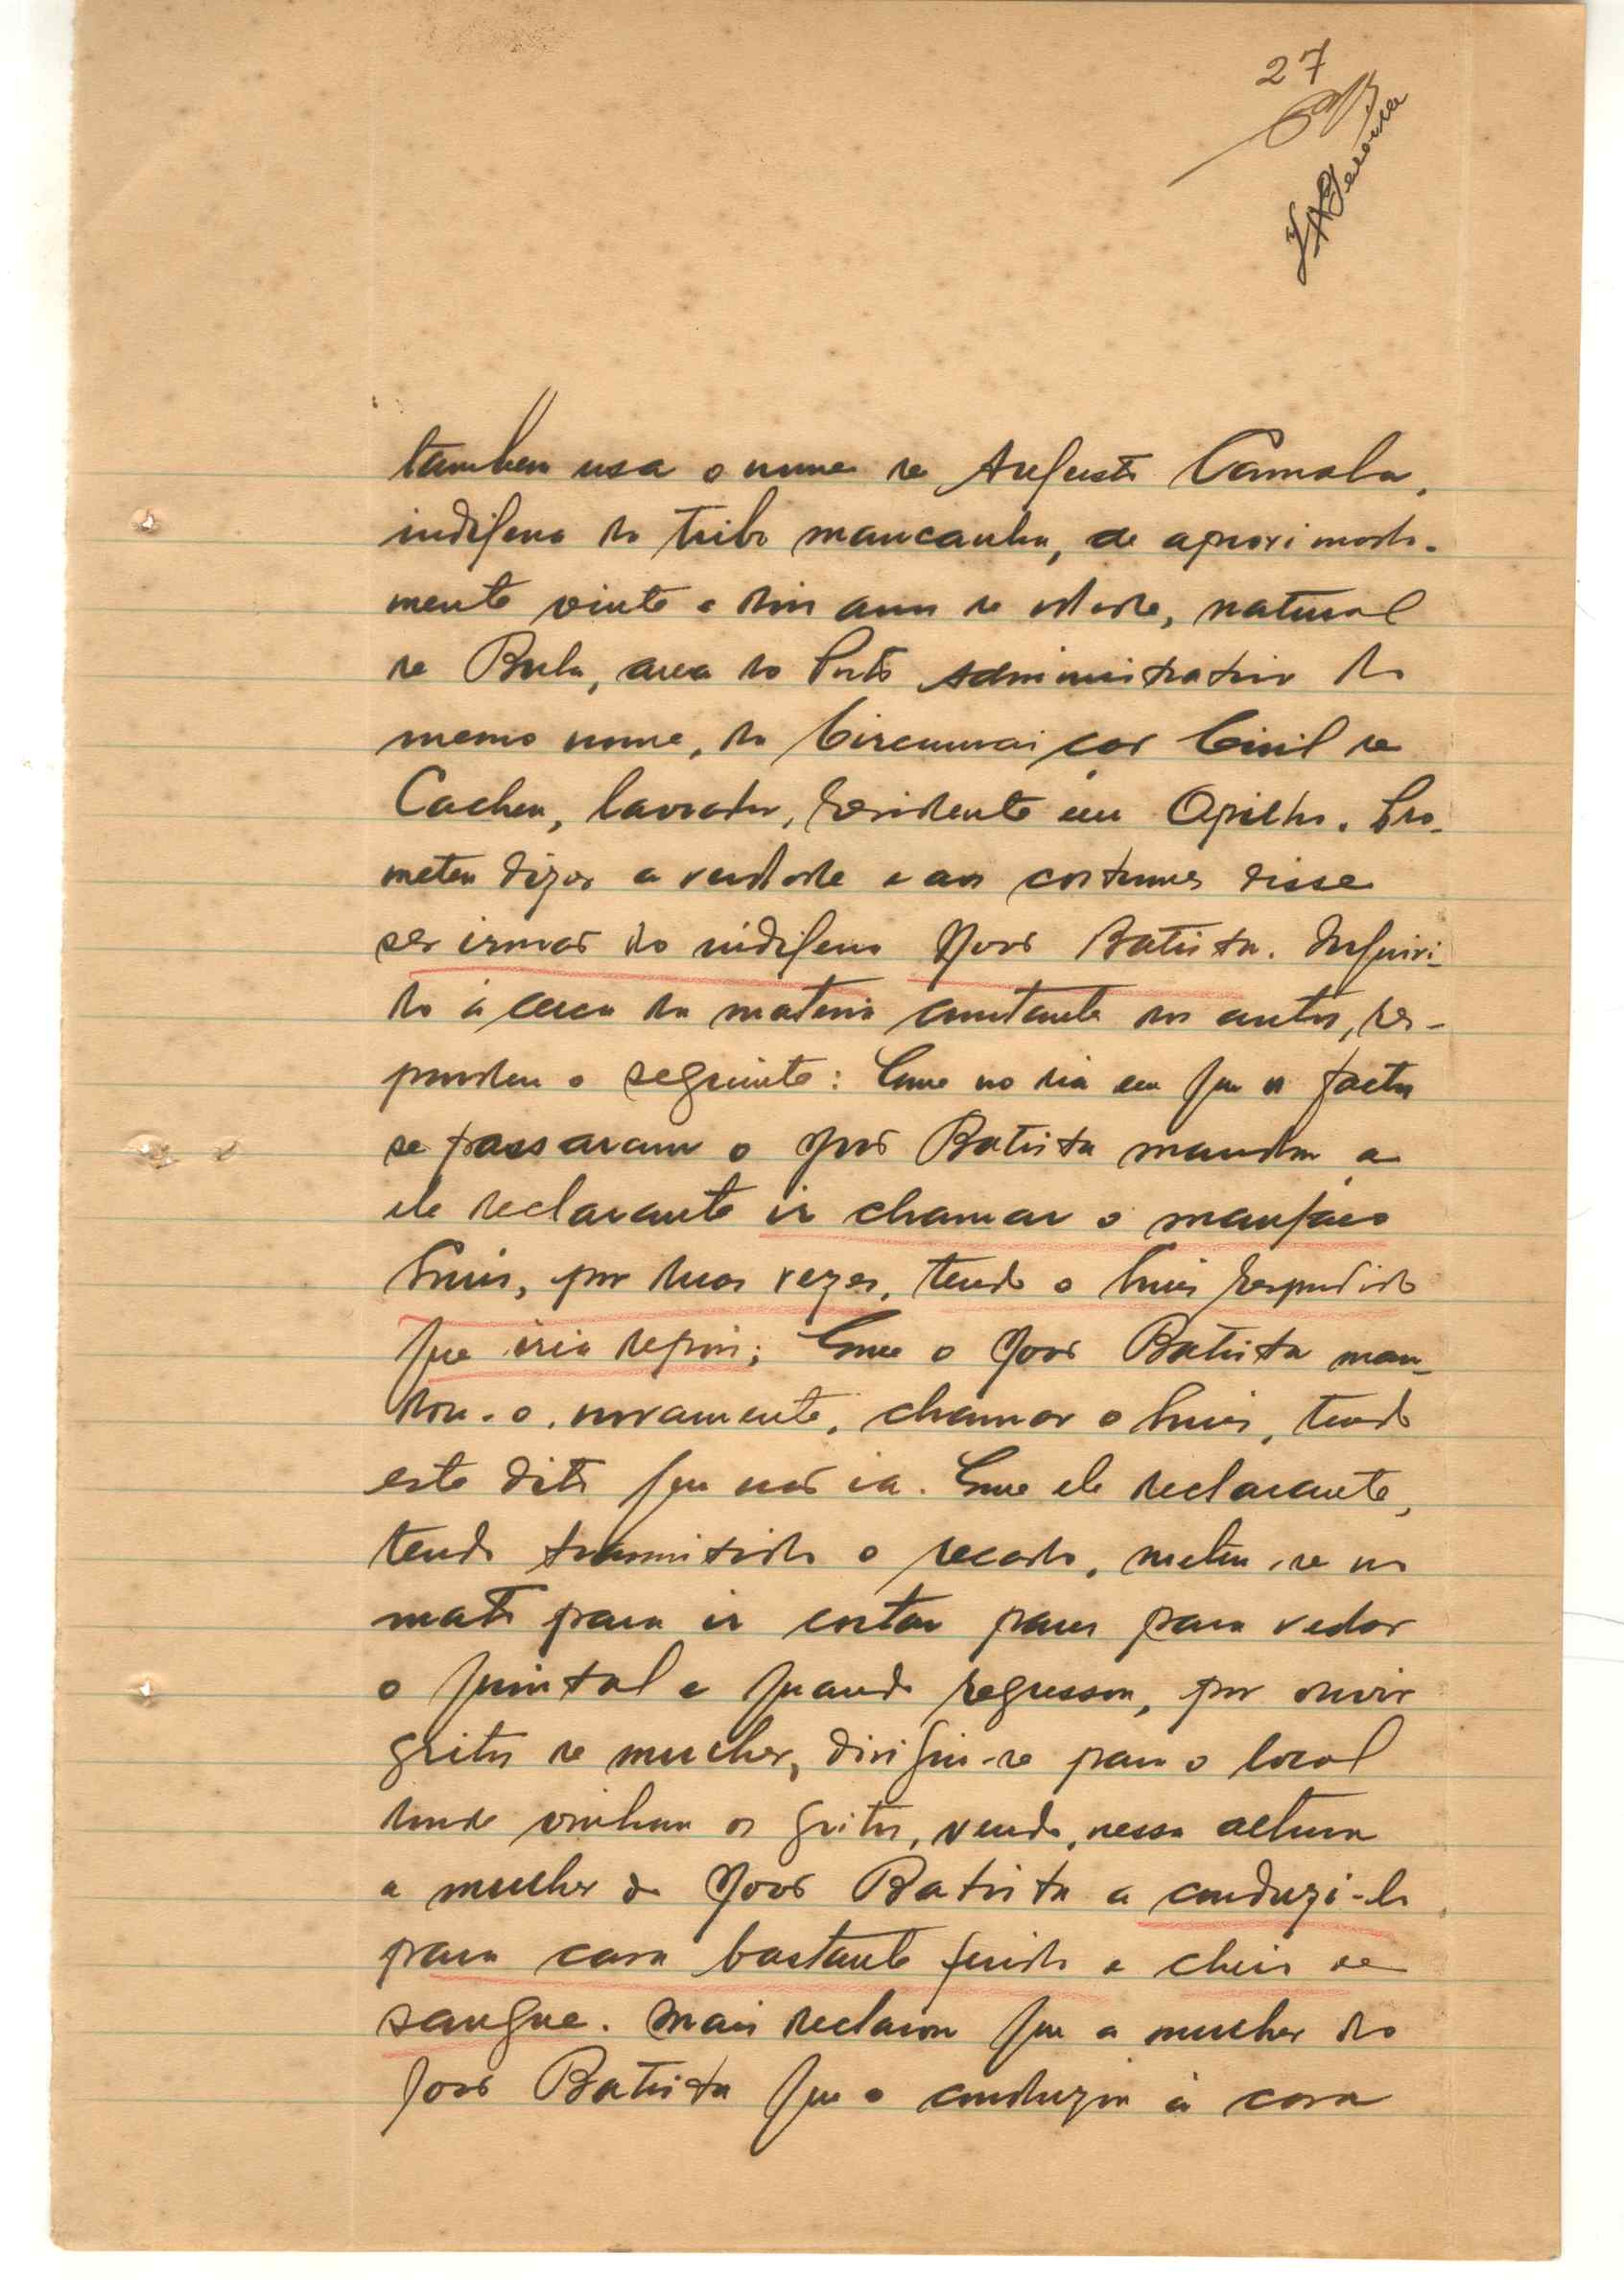 27
tambem usa o nome de Augusto Camala,
indigena da tribo mancanha, de aproximada-
mente vinte e dois anos de idade, natural
de Bula, area do Posto Administrativo do
mesmo nome, da Circunscrição Civil de
Cacheu, lavrador, residente em Opilho. Pro-
meteu dizer a verdade e aos costumes disse
ser irmão do indigena João Batista. Inquiri-
do á cerca da materia constante dos autos, res-
pondeu o seguinte: Que no dia em que os factos
se passaram o João Batista mandou a
ele declarante ir chamar o manjaco
Luis, por duas vezes, tendo o Luis respondido
que iria depois; Que o João Batista man-
dou-o, novamente, chamar o Luis, tendo
este dito que não ia. Que ele declarante,
tendo transmitido o recado, meteu-se no
mato para ir cortar paus para vedar
o quintal e quando regressou, por ouvir
gritos de mulher, dirigiu-se para o local
donde vinham os gritos, vendo, nessa altura
a mulher do João Batista a conduzi-lo
para casa bastante ferido e cheio de
sangue. Mais declarou que a mulher do
João Batista que o conduzia á casa